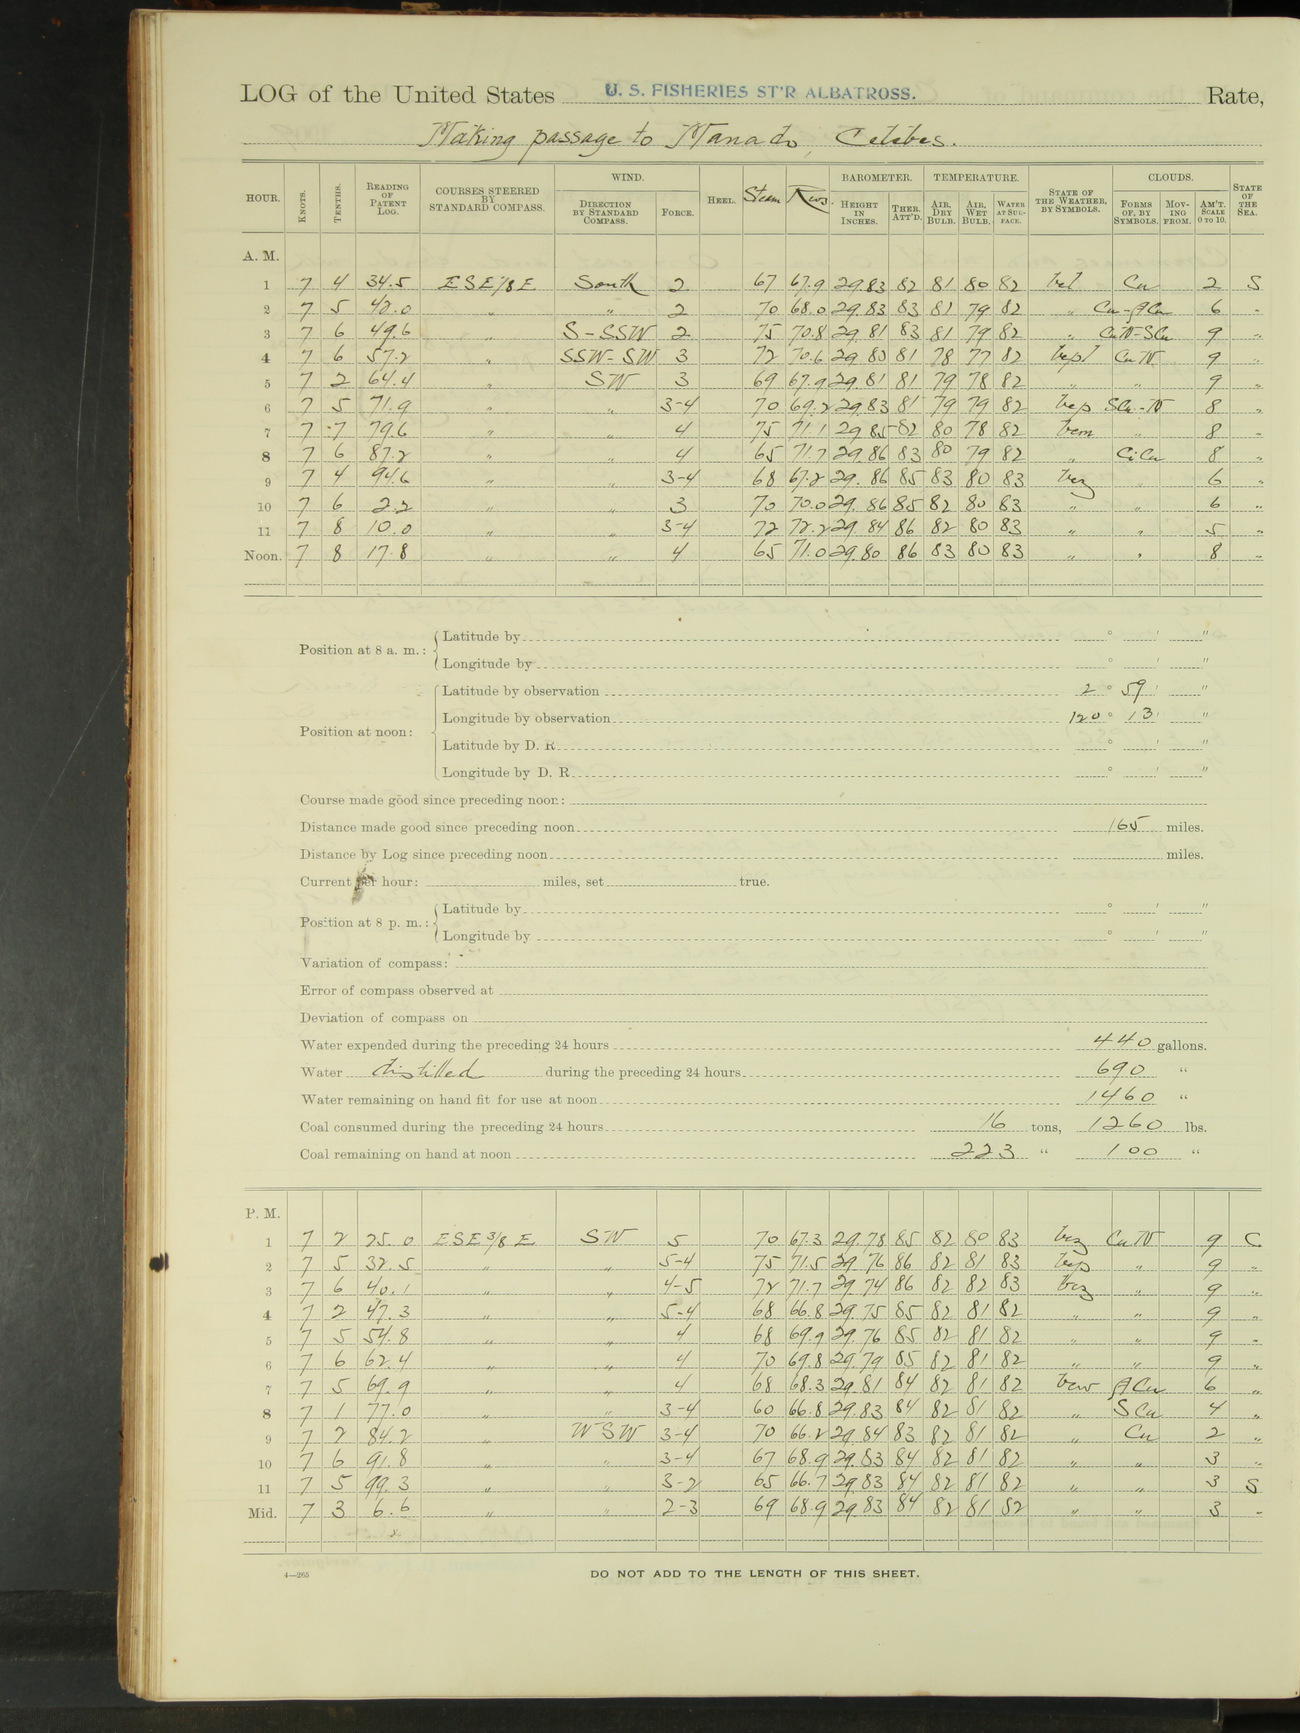 LOG of the United States U. S. FISHERIES ST'R ALBATROSS. Rate,
Making passage to Manado, Celebes.
HOUR. KNOTS. TENTHS. READING OF PATENT LOG. COURSES STEERED BY STANDARD COMPASS. WIND. DIRECTION BY STANDARD COMPASS. FORCE. HEEL. Steam Revs. BAROMETER. HEIGHT IN INCHES. THER. ATT'D. TEMPERATURE. AIR, DRY BULB. AIR, WET BULB. WATER AT SURFACE. STATE OF THE WEATHER, BY SYMBOLS. CLOUDS. FORMS OF, BY SYMBOLS. MOVING FROM. AM'T. SCALE 0 TO 10. STATE OF THE SEA.
A. M.
1 7 4 34.5 ESE 1/8 E South 2 67 67.9 29.83 82 81 80 82 Cu 2 S
2 7 5 42.0 " " 2 70 68.0 29.83 83 81 79 82 " Cu-ACu 6 "
3 7 6 49.6 " S-SSW 2 75 70.8 29.81 83 81 79 82 " CuN-SCu 9 "
4 7 6 57.2 " SSW-SW 3 72 70.6 29.80 81 78 77 82 CuN 9 "
5 7 2 64.4 " SW 3 69 67.9 29.81 81 79 78 82 " " 9 "
6 7 5 71.9 " " 3-4 70 69.2 29.83 81 79 79 82 bcp SCu-N 8 "
7 7 7 79.6 " " 4 75 71.1 29.85 82 80 78 82 bcm " 8 "
8 7 6 87.2 " " 4 65 71.7 29.86 83 80 79 82 " CiCu 8 "
9 7 4 94.6 " " 3-4 68 67.2 29.86 85 83 80 83 bcz " 6 "
10 7 6 2.2 " " 3 70 70.0 29.86 85 82 80 83 " " 6 "
11 7 8 10.0 " " 3-4 72 72.2 29.84 86 82 80 83 " " 5 "
Noon. 7 8 17.8 " " 4 65 71.0 29.80 86 83 80 83 " " 8 "
Position at 8 a. m.: Latitude by ° ' "
Longitude by ° ' "
Position at noon: Latitude by observation 2 ° 59 ' "
Longitude by observation 120 ° 13 ' "
Latitude by D. R. ° ' "
Longitude by D. R. ° ' "
Course made good since preceding noon:
Distance made good since preceding noon 165 miles.
Distance by Log since preceding noon miles.
Current per hour: miles, set true.
Position at 8 p. m.: Latitude by ° ' "
Longitude by ° ' "
Variation of compass:
Error of compass observed at
Deviation of compass on
Water expended during the preceding 24 hours 440 gallons.
Water distilled during the preceding 24 hours 690 "
Water remaining on hand fit for use at noon 1460 "
Coal consumed during the preceding 24 hours 16 tons, 1260 lbs.
Coal remaining on hand at noon 223 " 100 "
P. M.
1 7 2 25.0 ESE 3/8 E SW 5 70 67.3 29.78 85 82 80 83 bcz CuN 9 C
2 7 5 32.5 " " 5-4 75 71.5 29.76 86 82 81 83 bcp " 9 "
3 7 6 40.1 " " 4-5 72 71.7 29.74 86 82 82 83 bcz " 9 "
4 7 2 47.3 " " 5-4 68 66.8 29.75 85 82 81 82 " " 9 "
5 7 5 54.8 " " 4 68 69.9 29.76 85 82 81 82 " " 9 "
6 7 6 62.4 " " 4 70 69.8 29.79 85 82 81 82 " " 9 "
7 7 5 69.9 " " 4 68 68.3 29.81 84 82 81 82 bcw ACu 6 "
8 7 1 77.0 " " 3-4 60 66.8 29.83 84 82 81 82 " SCu 4 "
9 7 2 84.2 " WSW 3-4 70 66.2 29.84 83 82 81 82 " Cu 2 "
10 7 6 91.8 " " 3-4 67 68.9 29.83 84 82 81 82 " " 3 "
11 7 5 99.3 " " 3-2 65 66.7 29.83 84 82 81 82 " " 3 S
Mid. 7 3 6.6 " " 2-3 69 68.9 29.83 84 82 81 82 " " 3 "
4—265
DO NOT ADD TO THE LENGTH OF THIS SHEET.